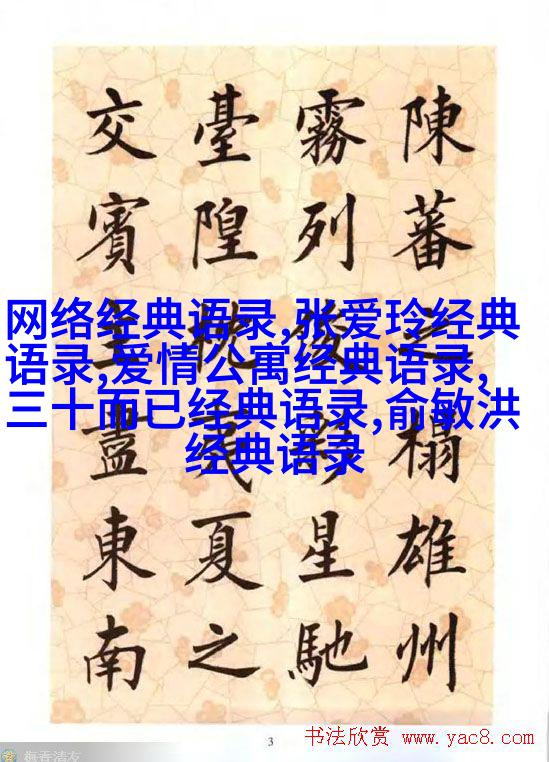 陳蕃之榻雄州
霧列俊彩星馳
臺隍枕夷夏之
交賓主盡東南
网络经典语录,张爱玲经典
语录,爱情公寓经典语录,
三十而已经典语录,俞敏洪
经典语录
3
书法欣赏 www.yac8.com